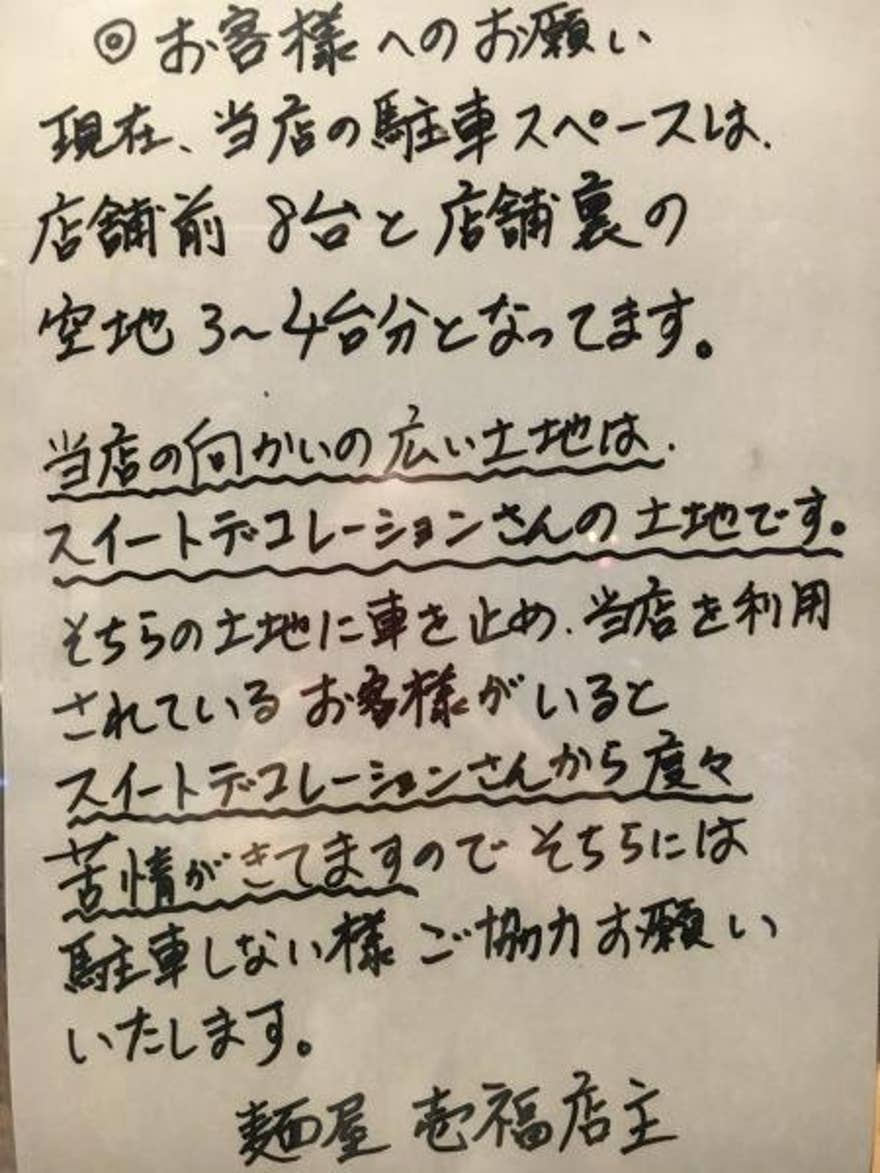 ◎お客様へのお願い
現在、当店の駐車スペースは、
店舗前 8台と店舗裏の
空地 3〜4台分となってます。
当店の向かいの広い土地は、
スイートデコレーションさんの土地です。
そちらの土地に車を止め、当店を利用
されているお客様がいると
スイートデコレーションさんから度々
苦情がきてますのでそちらには
駐車しない様ご協力お願い
いたします。
麺屋 壱福店主